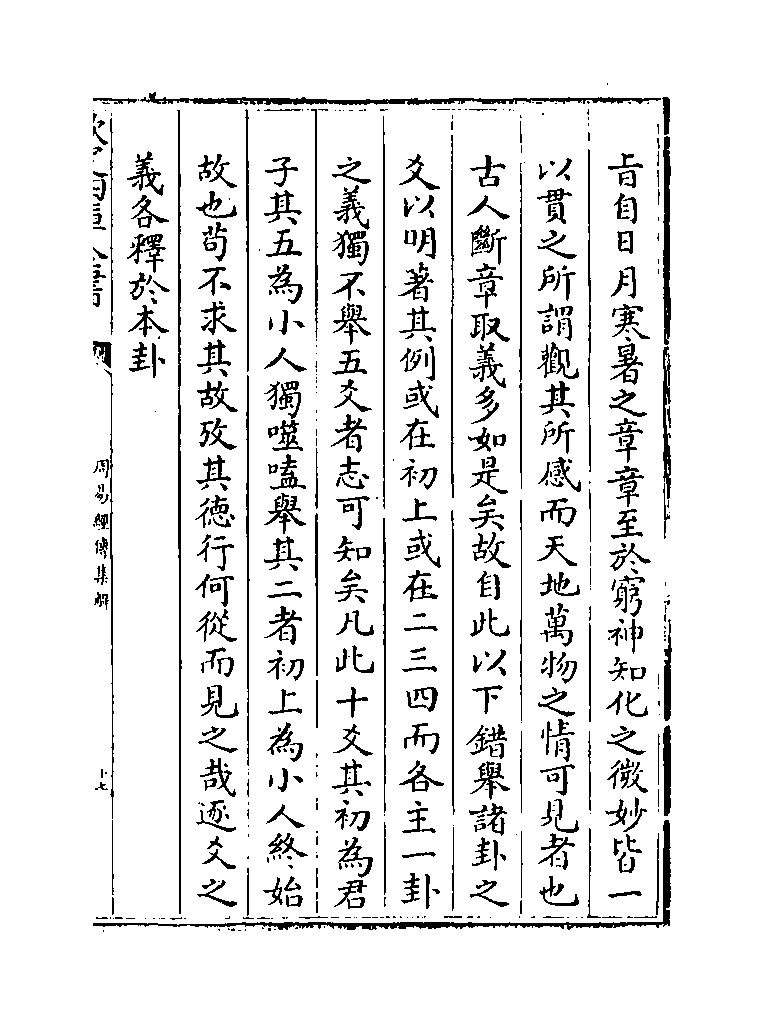 旨自日月寒暑之章章至於窮神知化之微妙皆一
以貫之所謂觀其所感而天地萬物之情可見者也
古人斷章取義多如是矣故自此以下錯舉諸卦之
爻以明著其例或在初上或在二三四而各主一卦
之義獨不舉五爻者志可知矣凡此十爻其初為君
子其五為小人獨噬嗑舉其二者初上為小人終始
故也茍不求其故攷其德行何從而見之哉逐爻之
義各釋於本卦
周易經傳集解
十七